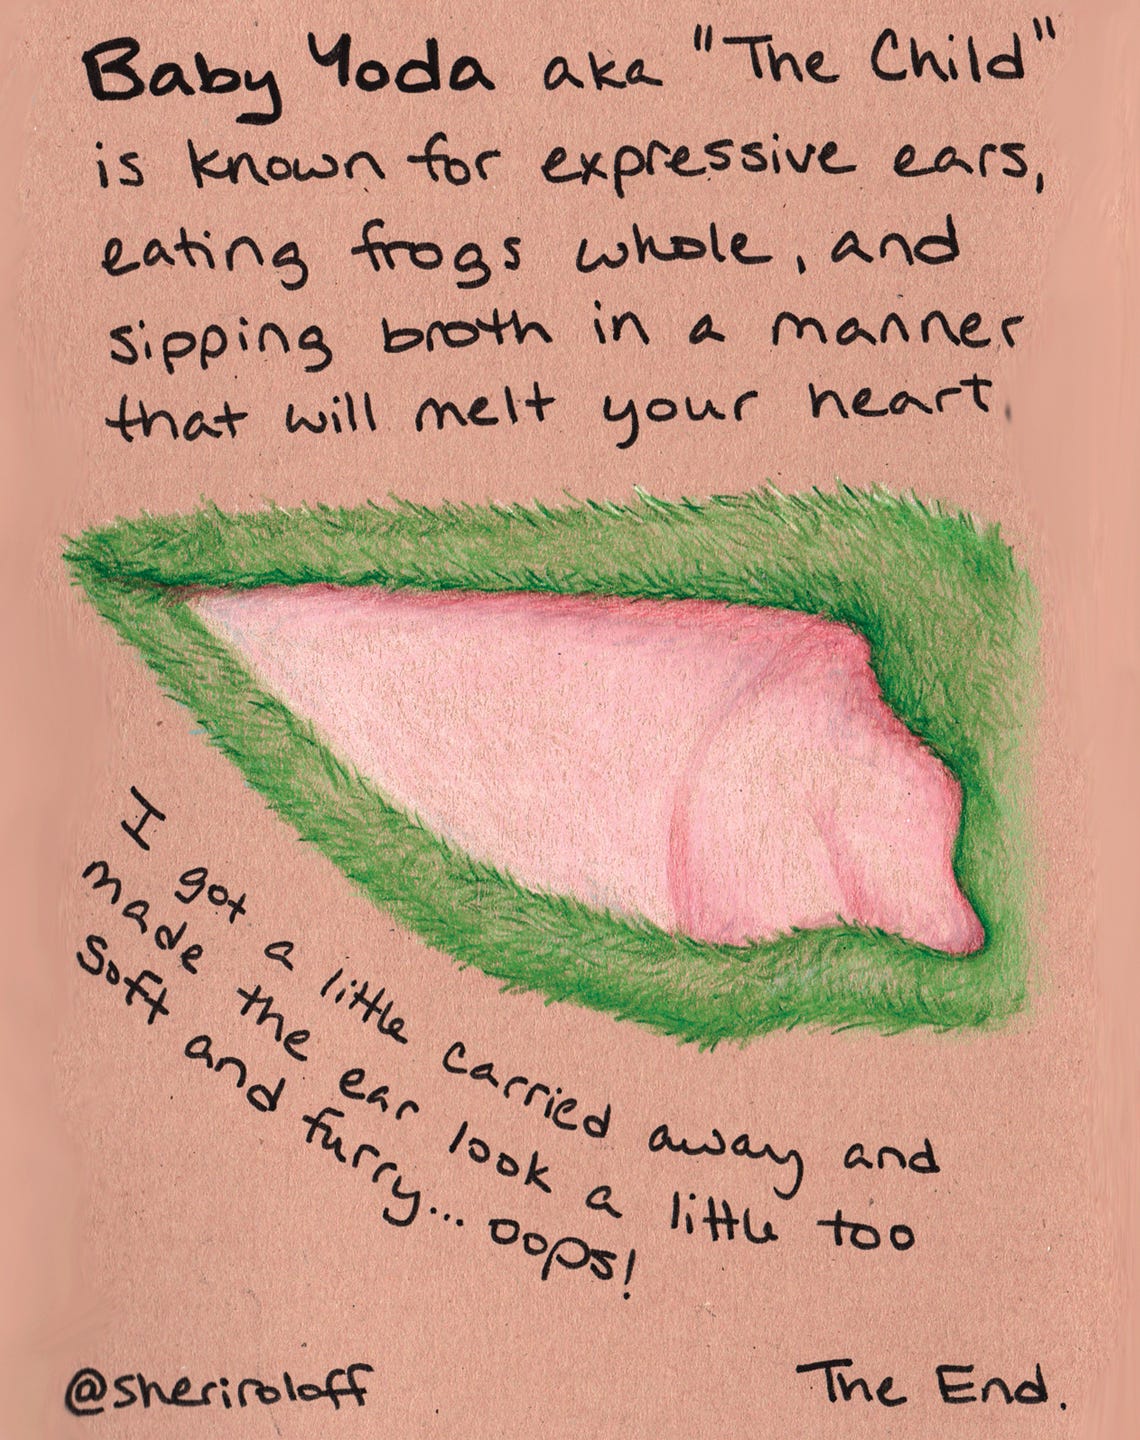 Baby Yoda aka "The Child"
is known for expressive ears,
eating frogs whole, and
sipping broth in a manner
that will melt your heart.
I got a little carried away and
made the ear look a little too
soft and furry... oops!
@sheriroloff
The End.